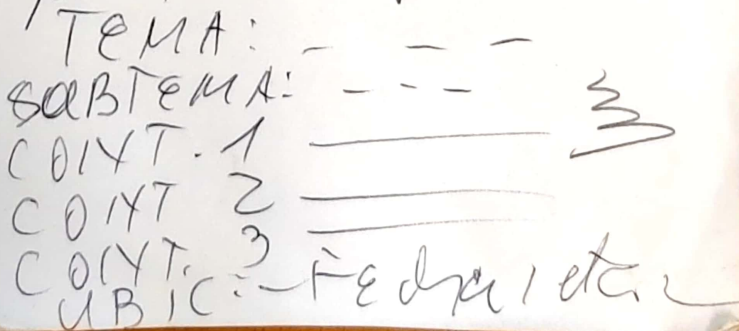 TEMA: - - -
SUBTEMA: - - -
CONT. 1
CONT 2
CONT. 3
UBIC: - Fecha, etc.